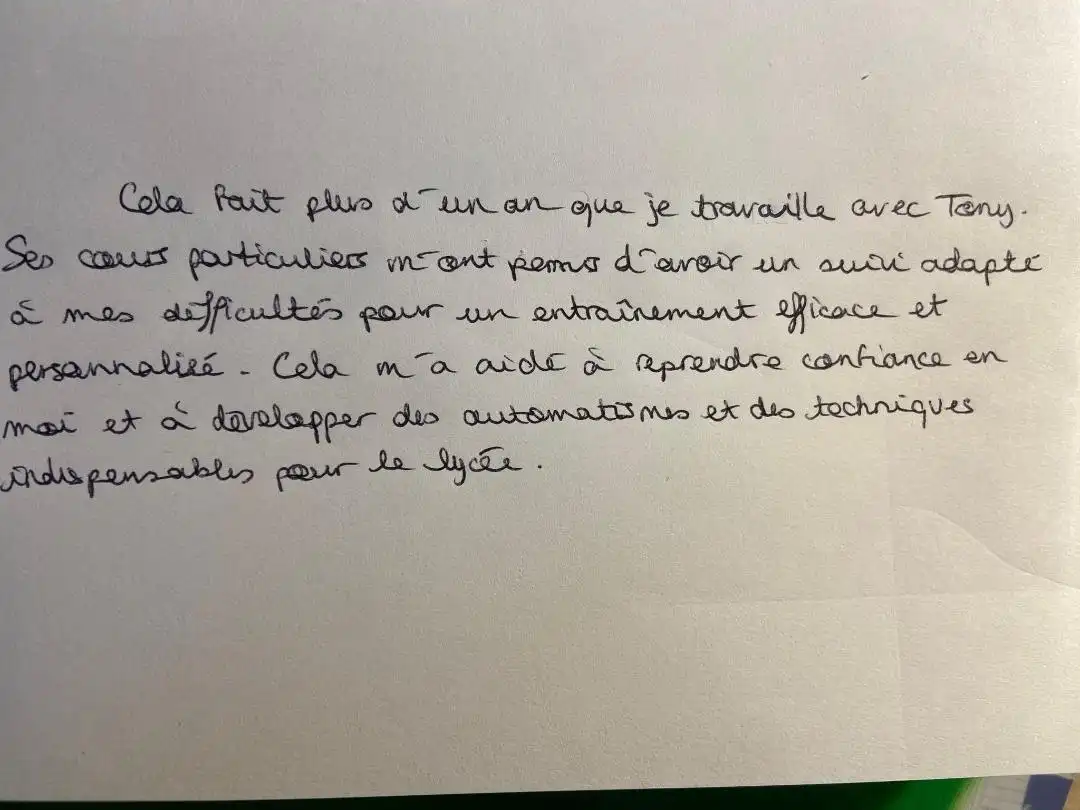 Cela fait plus d'un an que je travaille avec Tony.
Ses cours particuliers m'ont permis d'avoir un suivi adapté
à mes difficultés pour un entraînement efficace et
personnalisé. Cela m'a aidé à reprendre confiance en
moi et à développer des automatismes et des techniques
indispensables pour le lycée.